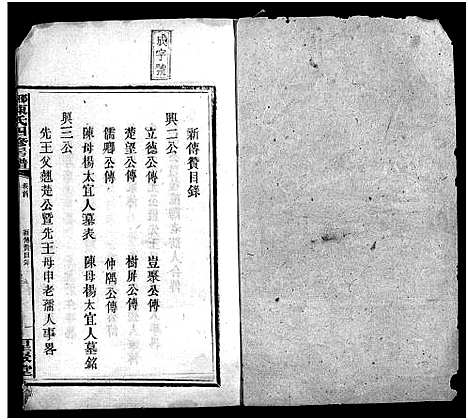 成字號
新傳贊目錄
興二公
立德公傳 豈聚公傳
楚望公傳 樹屏公傳
儒卿公傳 仲隅公傳
陳母楊太宜人墓表 陳母楊太宜人墓銘
興三公
先王父翹楚公暨先王母申老孺人事畧
氏四修房譜
卷首
新傳贊目錄